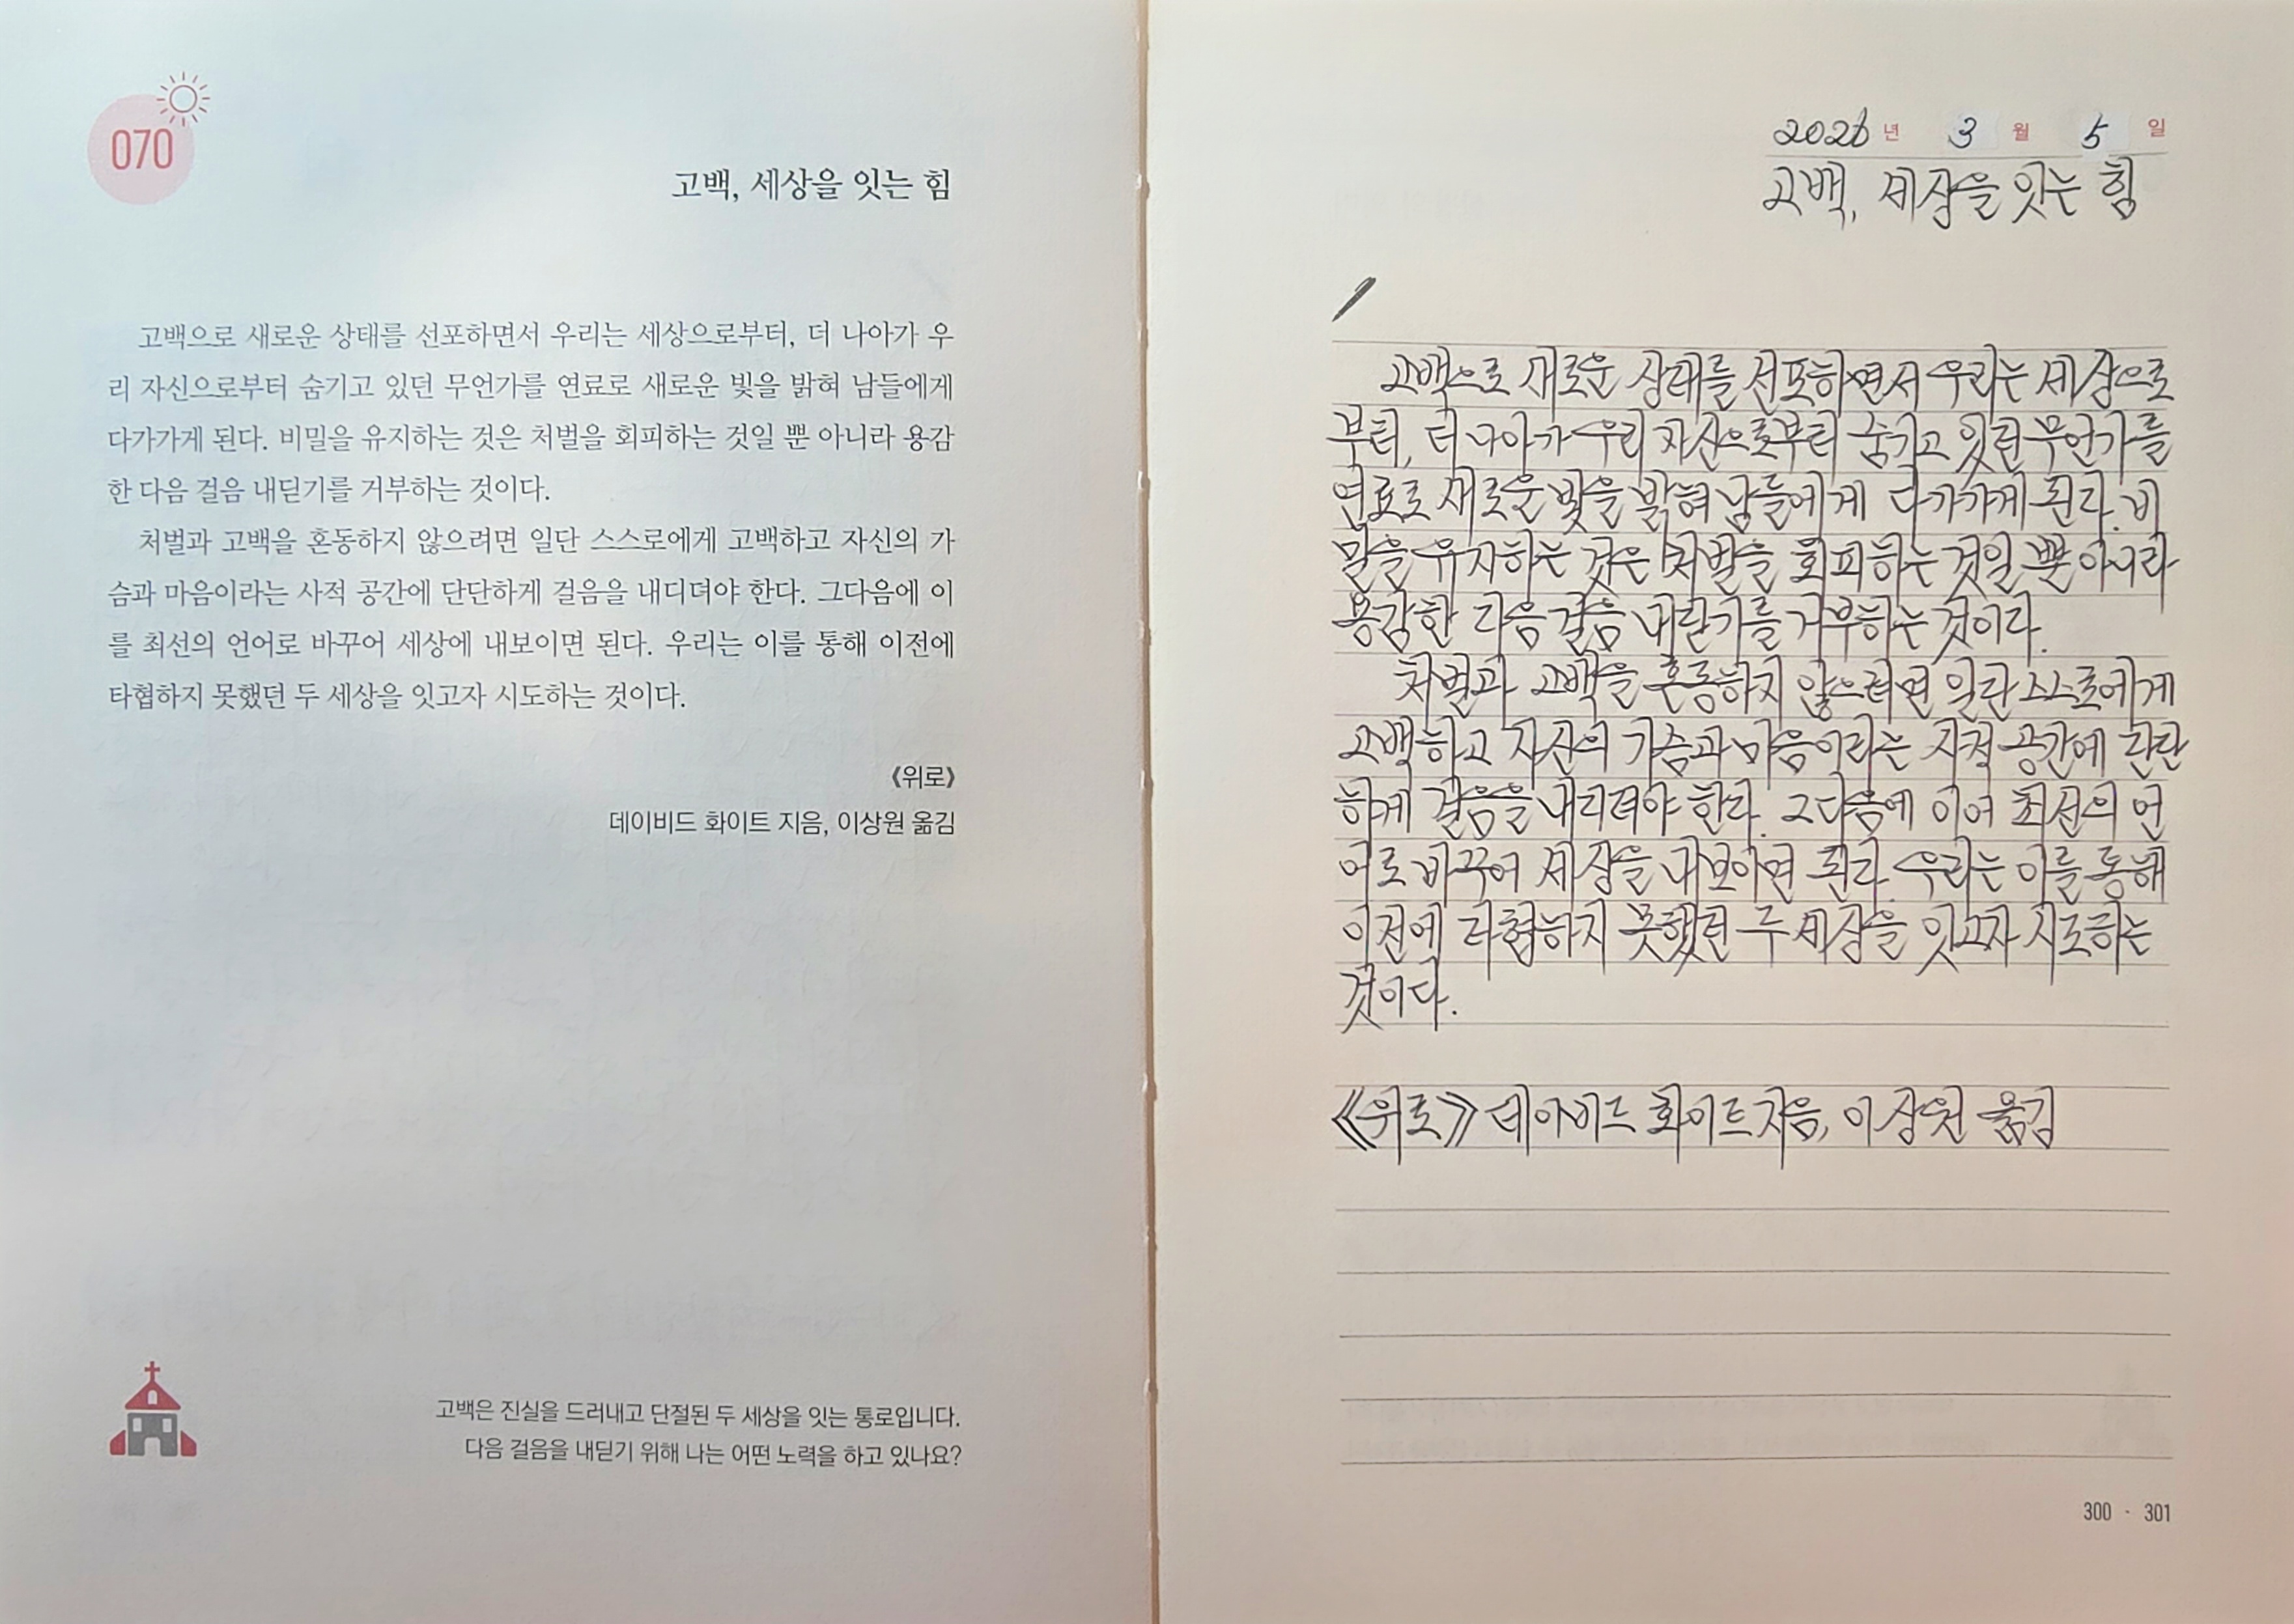 070
고백, 세상을 잇는 힘
고백으로 새로운 상태를 선포하면서 우리는 세상으로부터, 더 나아가 우
리 자신으로부터 숨기고 있던 무언가를 연료로 새로운 빛을 밝혀 남들에게
다가가게 된다. 비밀을 유지하는 것은 처벌을 회피하는 것일 뿐 아니라 용감
한 다음 걸음 내딛기를 거부하는 것이다.
처벌과 고백을 혼동하지 않으려면 일단 스스로에게 고백하고 자신의 가
슴과 마음이라는 사적 공간에 단단하게 걸음을 내디뎌야 한다. 그다음에 이
를 최선의 언어로 바꾸어 세상에 내보이면 된다. 우리는 이를 통해 이전에
타협하지 못했던 두 세상을 잇고자 시도하는 것이다.
《위로》
데이비드 화이트 지음, 이상원 옮김
고백은 진실을 드러내고 단절된 두 세상을 잇는 통로입니다.
다음 걸음을 내딛기 위해 나는 어떤 노력을 하고 있나요?
2026년 3월 5일
고백, 세상을 잇는 힘
고백으로 새로운 상태를 선포하면서 우리는 세상으로
부터, 더 나아가 우리 자신으로부터 숨기고 있던 무언가를
연료로 새로운 빛을 밝혀 남들에게 다가가게 된다. 비
밀을 유지하는 것은 처벌을 회피하는 것일 뿐 아니라
용감한 다음 걸음 내딛기를 거부하는 것이다.
처벌과 고백을 혼동하지 않으려면 일단 스스로에게
고백하고 자신의 가슴과 마음이라는 사적 공간에 단단
하게 걸음을 내디뎌야 한다. 그다음에 이어 최선의 언
어로 바꾸어 세상을 내보이면 된다. 우리는 이를 통해
이전에 타협하지 못했던 두 세상을 잇고자 시도하는
것이다.
《위로》 데이비드 화이트 지음, 이상원 옮김
300 · 301